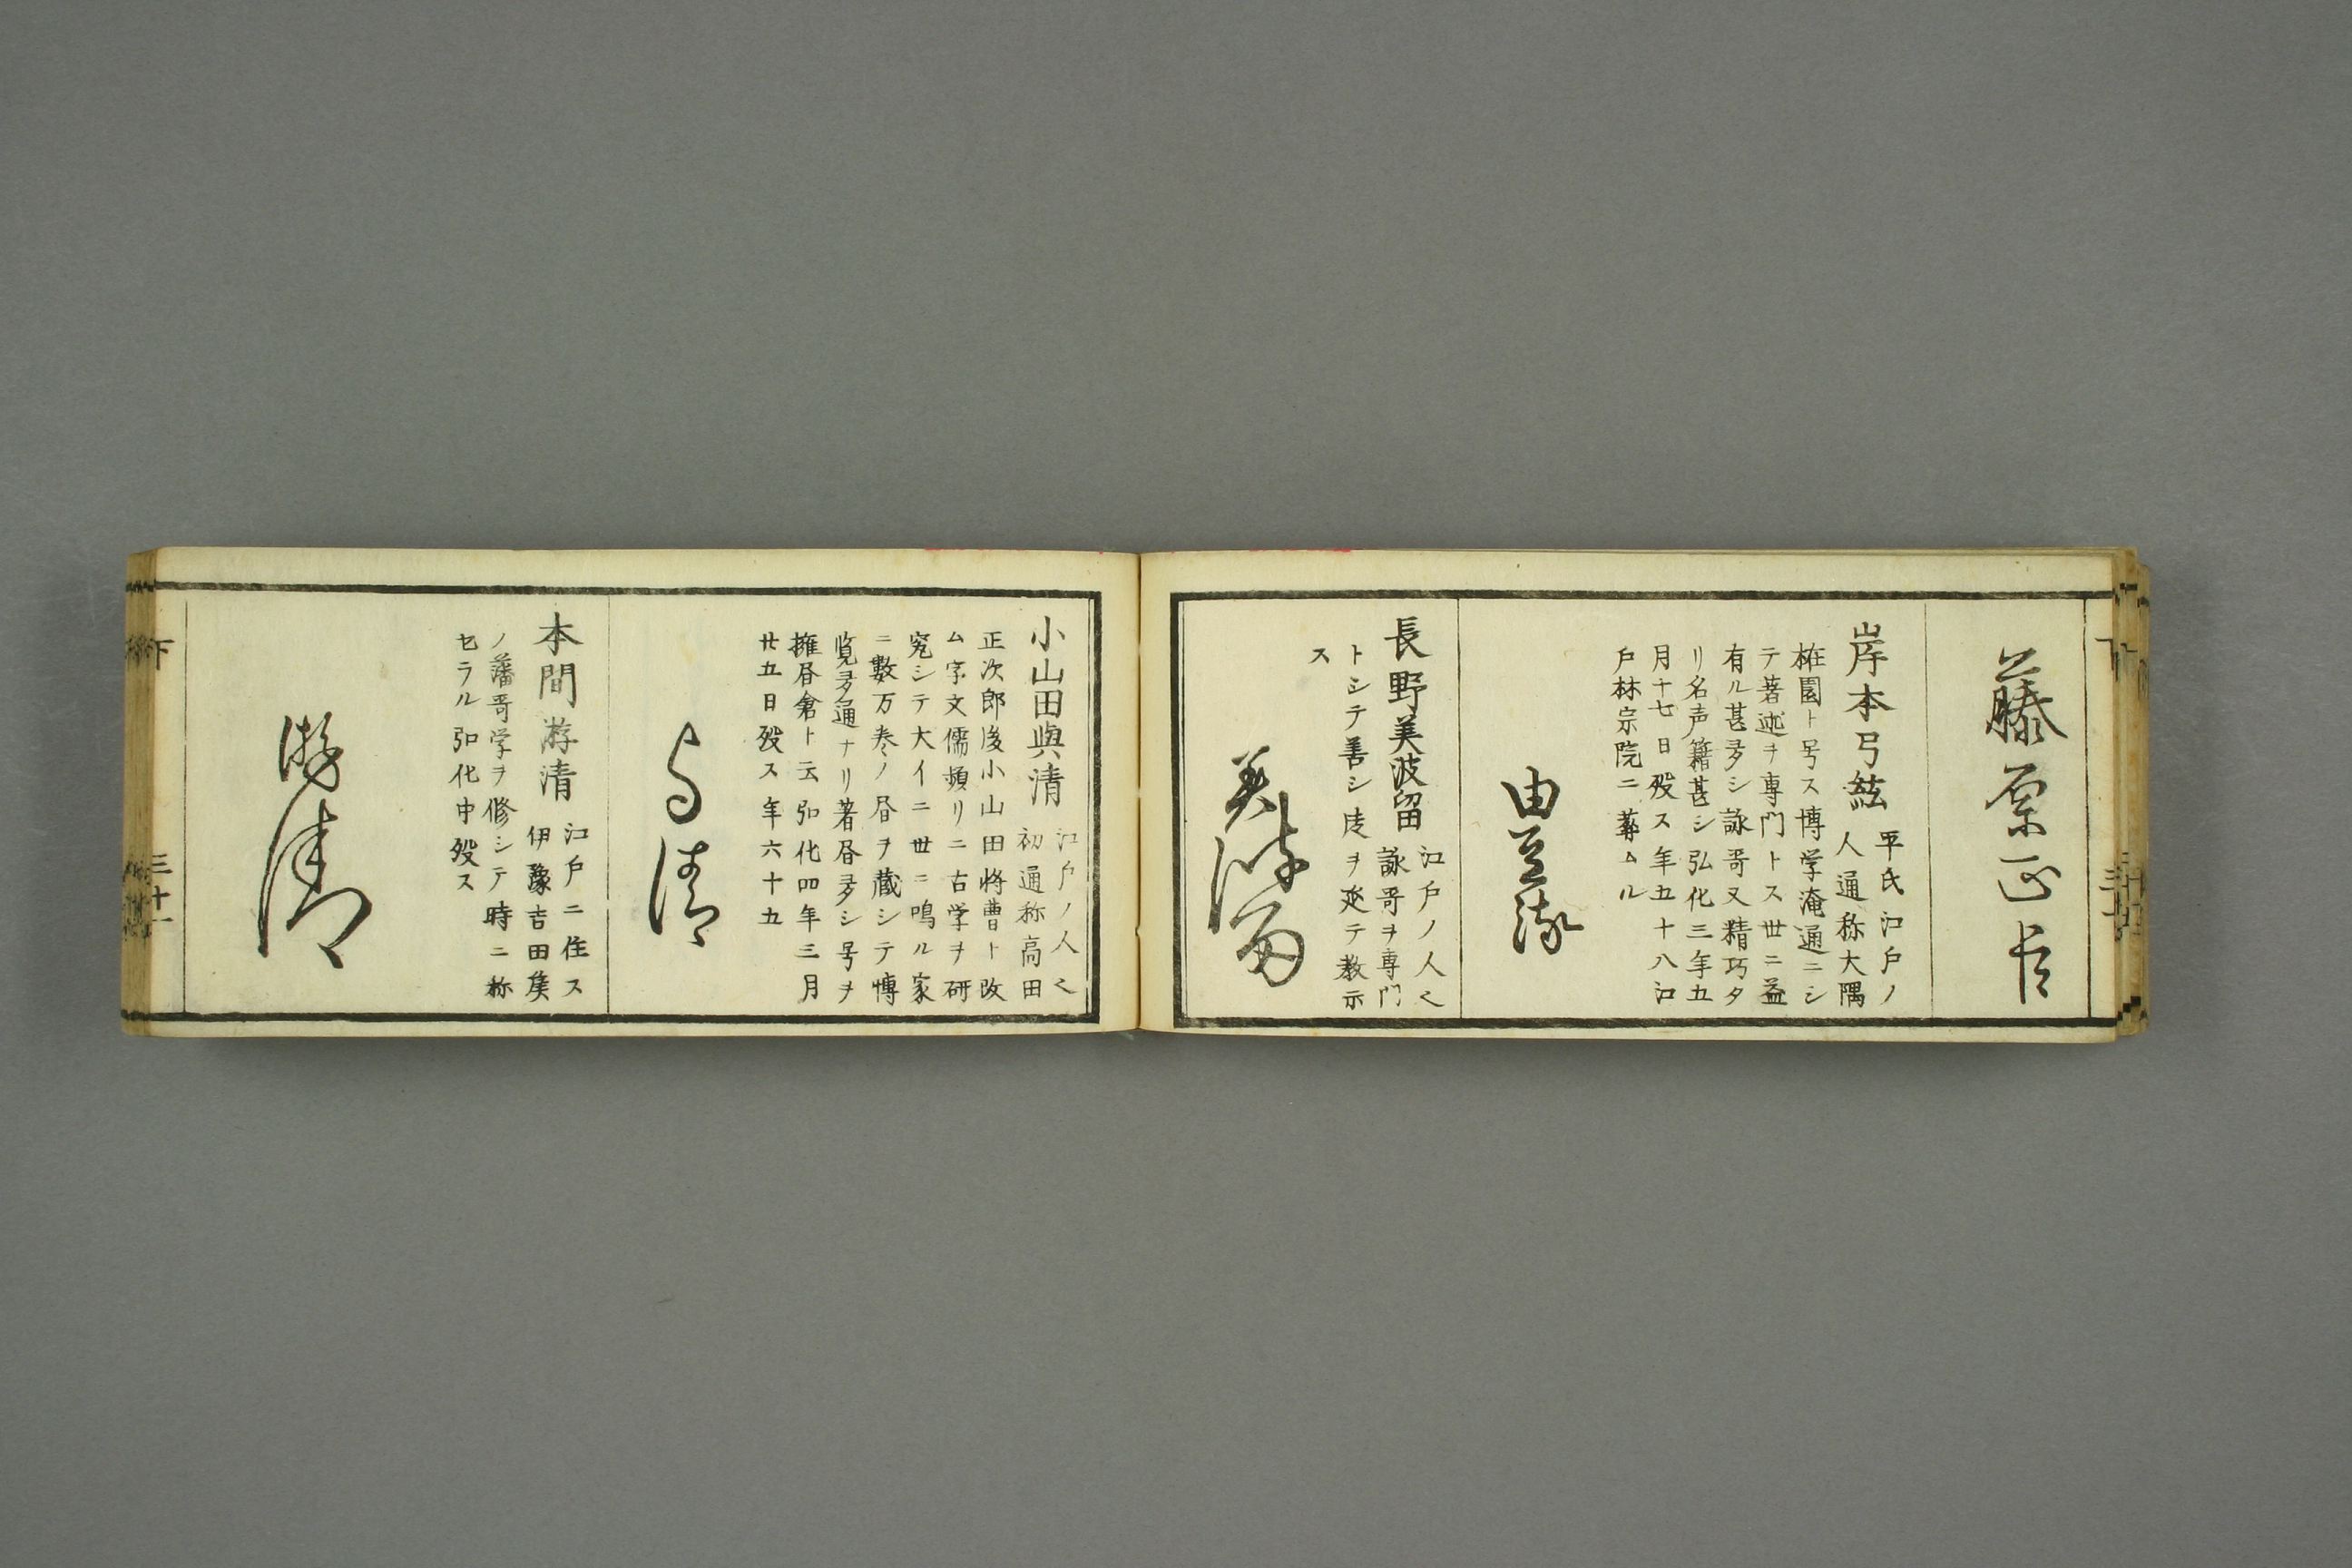 藤原正臣
岸本弓絃
平氏江戸ノ
人通称大隅
㭳園ト号ス博学淹通ニシ
テ著述ヲ専門トス世ニ益
有ル甚多シ詠哥又精巧タ
リ名声籍甚シ弘化三年五
月十七日殁ス年五十八江
戸林宗院ニ葬ムル
由豆流
長野美波留
江戸ノ人之
詠哥ヲ専門
トシテ善シ徒ヲ延テ教示
ス
美波留
小山田與清
江戸ノ人之
初通称高田
正次郎後小山田将曹ト改
ム字文儒頻リニ古学ヲ研
究シテ大イニ世ニ鳴ル家
ニ數万巻ノ昼ヲ蔵シテ博
覧多通ナリ著昼多シ号ヲ
擁昼倉ト云弘化四年三月
廿五日殁ス年六十五
与清
本間游清
江戸ニ住ス
伊豫吉田矦
ノ藩哥学ヲ修シテ時ニ称
セラル弘化中殁ス
游清
下
三十一